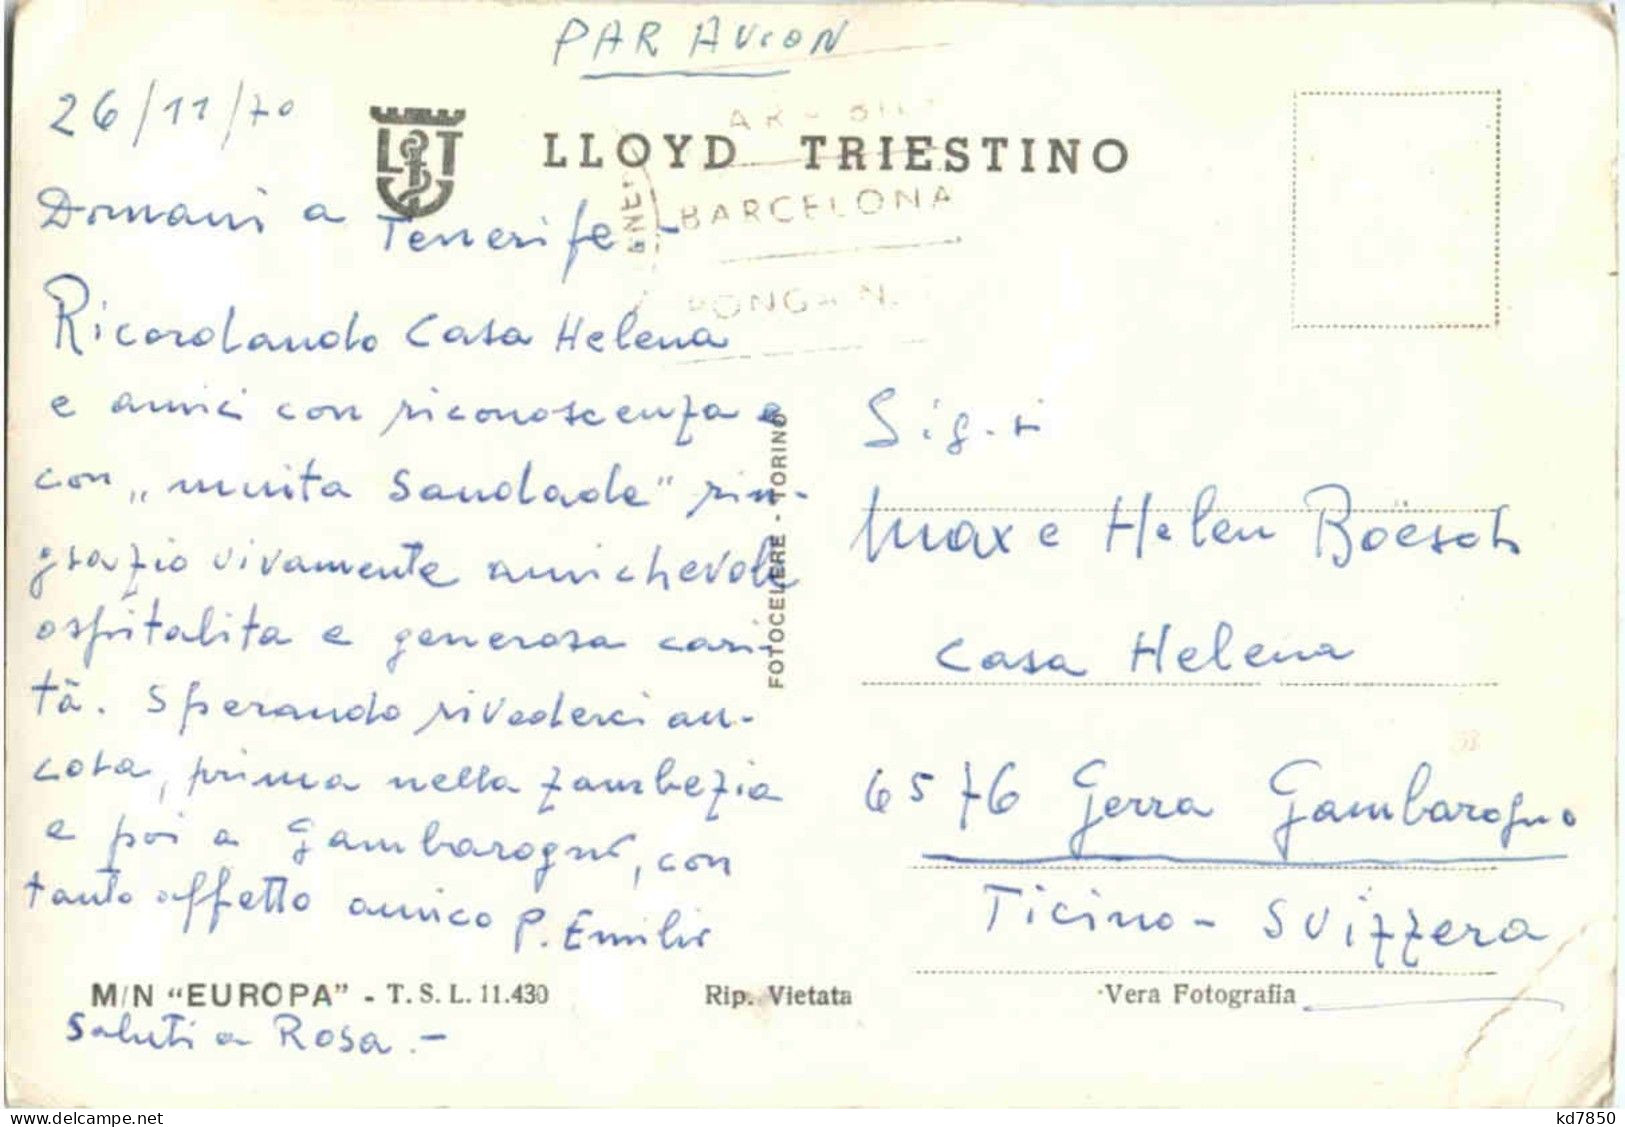 PAR AVION
26/11/70
LLOYD TRIESTINO
LT
Domani a Tenerife -
BARCELONA
Ricordando Casa Helena
e amici con riconoscenza e
con „muita Saudade" rin-
grazio vivamente amichevole
ospitalita e generosa cari-
tà. Sperando rivederci an-
cora, prima nella Zambezia
e poi a Gambarogno, con
tanto affetto amico P. Emilio
FOTOCELERE - TORINO
Sig.ri
Max e Helen Boësch
Casa Helena
6576 Gerra Gambarogno
Ticino - Svizzera
M/N "EUROPA" - T. S. L. 11.430
Rip. Vietata
Vera Fotografia
Saluti a Rosa. -
delcampe.net
kd7850